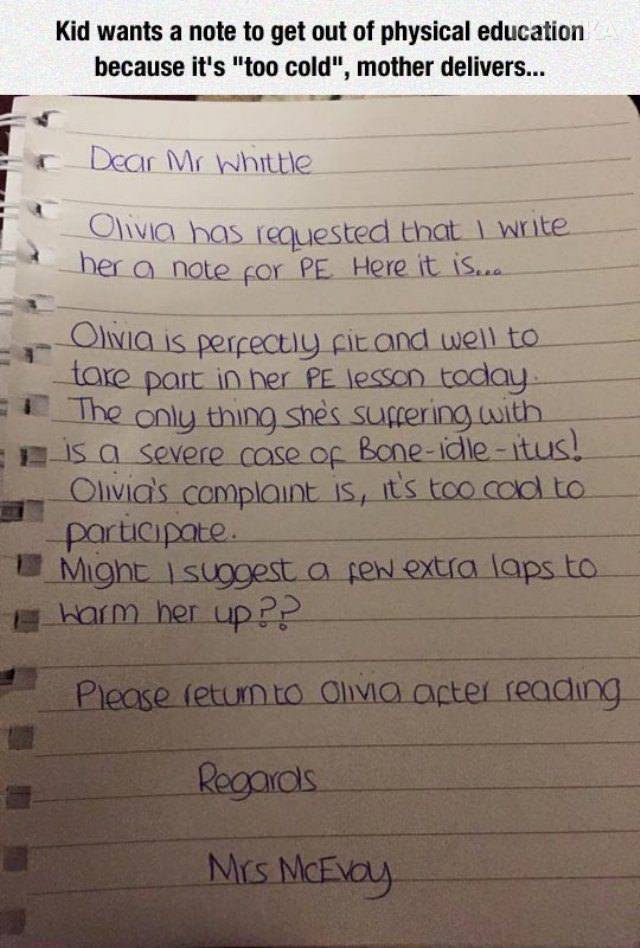 Kid wants a note to get out of physical education
because it's "too cold", mother delivers...
Dear Mr Whittle
Olivia has requested that I write
her a note for PE Here it is...
Olivia is perfectly fit and well to
take part in her PE lesson today.
The only thing she's suffering with
is a severe case of Bone-idle-itus!
Olivia's complaint is, it's too cold to
participate.
Might I suggest a few extra laps to
warm her up??
Please return to Olivia after reading
Regards
Mrs McEvoy